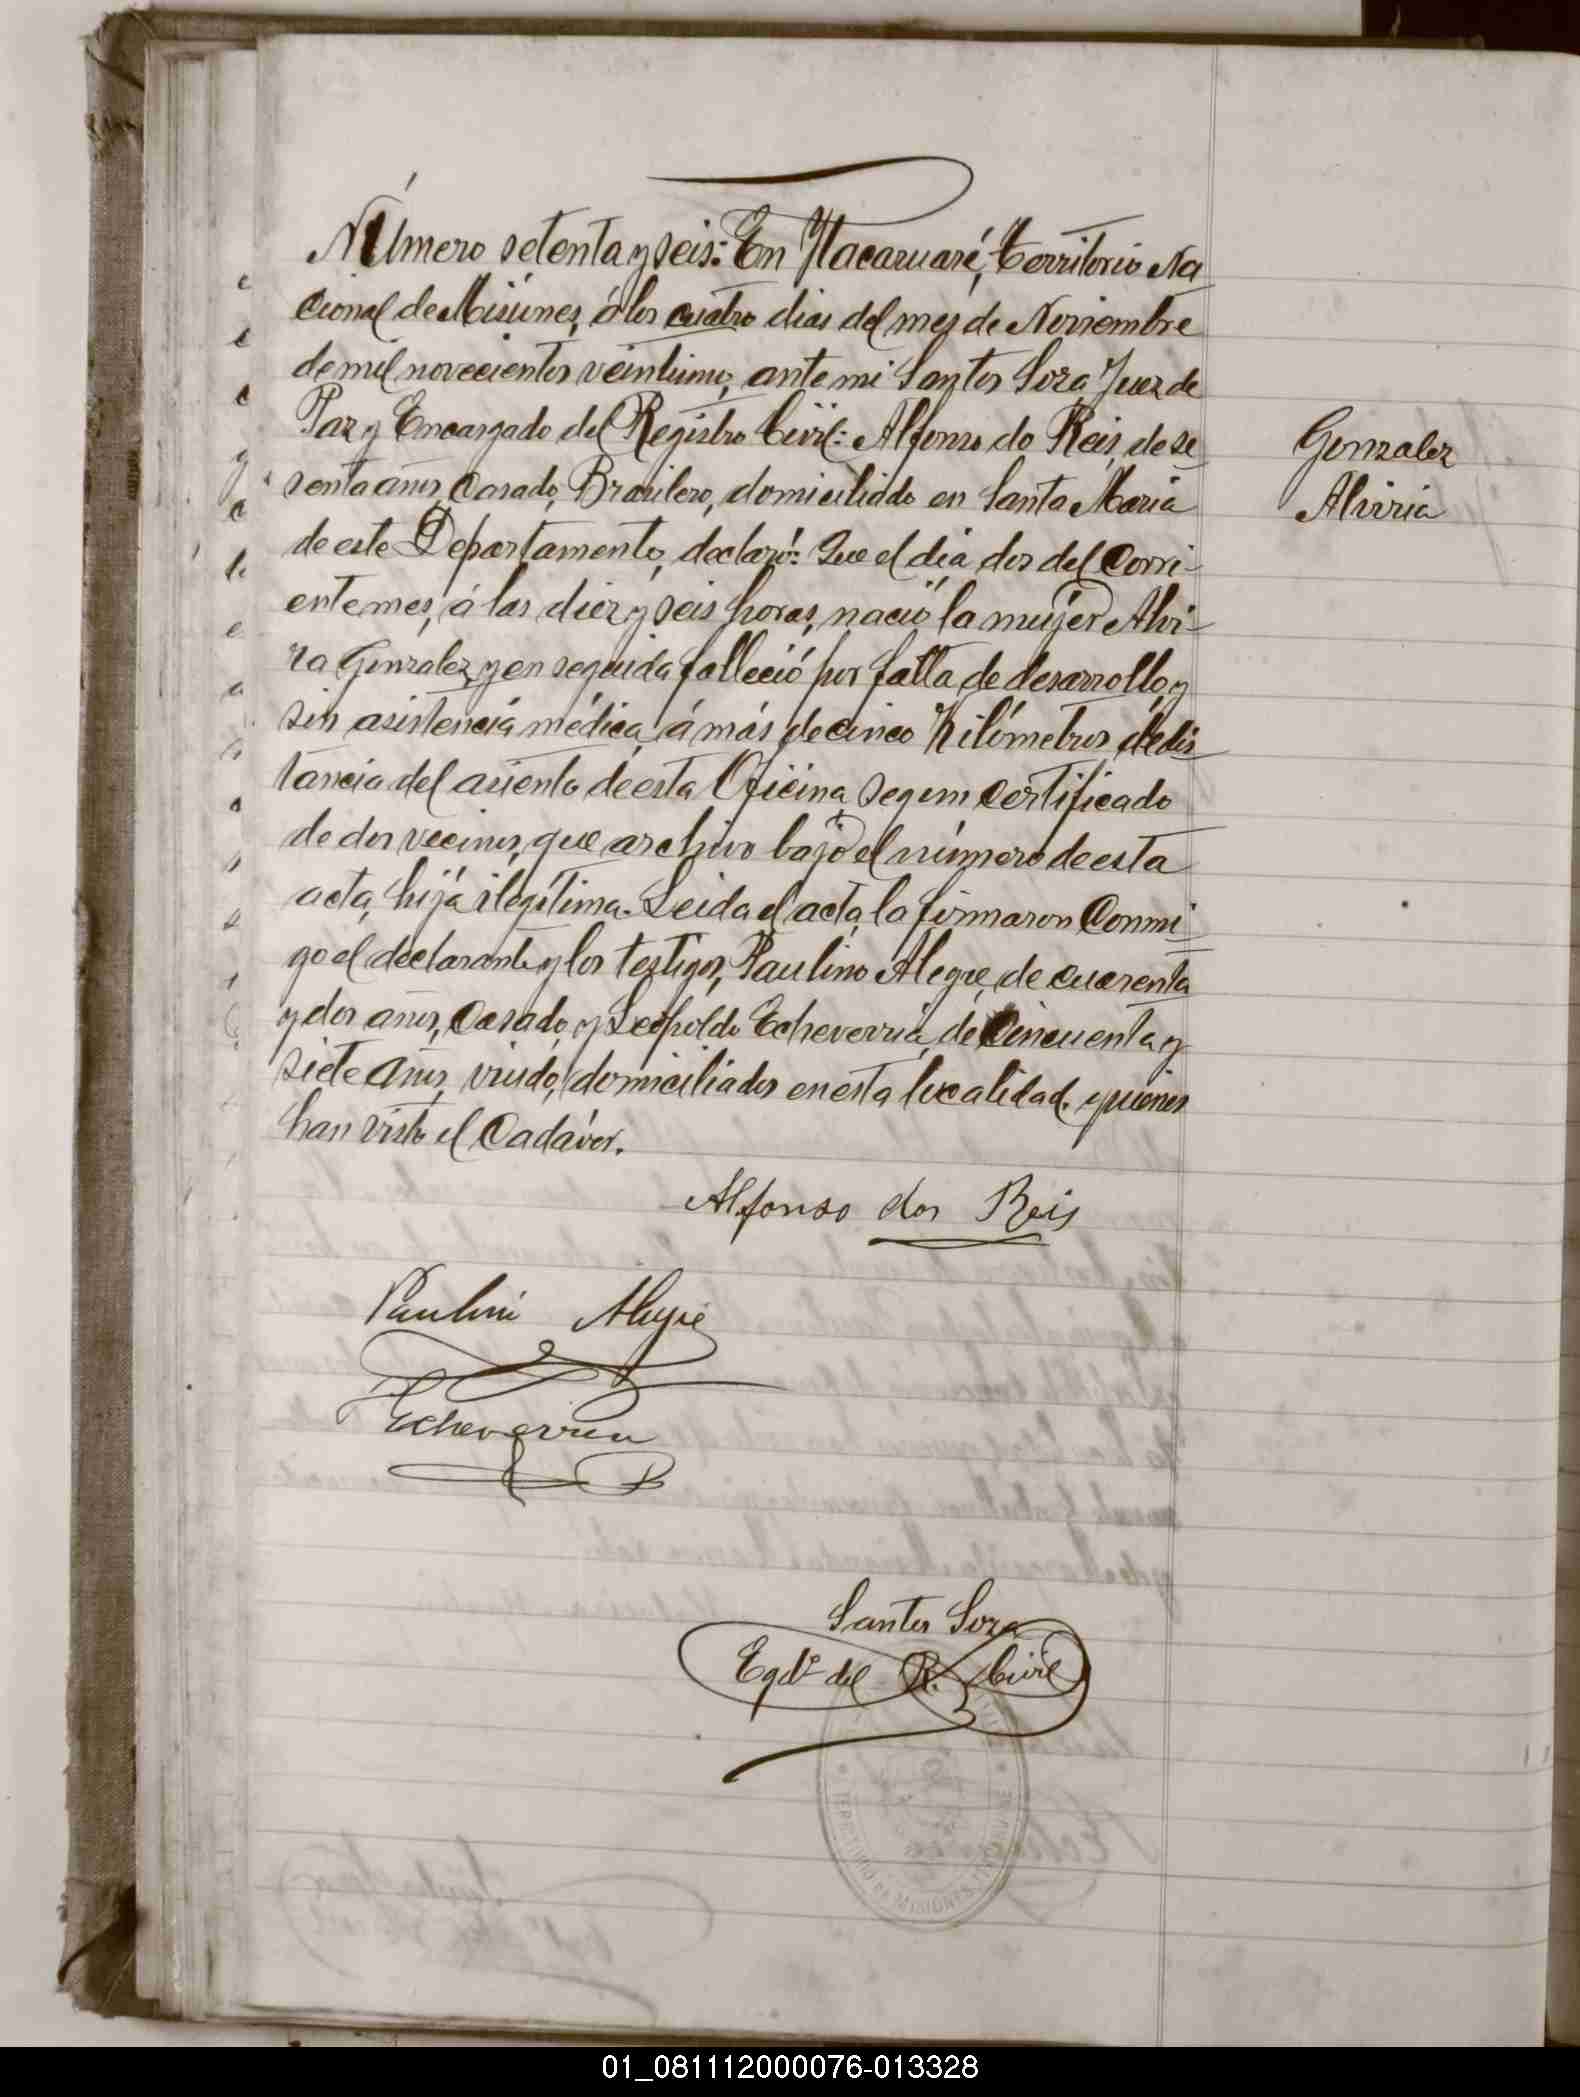 Número setenta y seis: En Ytacaruaré, Territorio Na
cional de Misiones, á los cuatro dias del mes de Noviembre
de mil novecientos veintiuno, ante mi Santos Soza Juez de
Paz y Encargado del Registro Civil: Alfonso do Reis, de se
senta años, Casado, Brasilero, domiciliado en Santa Maria
de este Departamento, declaró: Que el dia dos del Corri-
ente mes, á las diez y seis horas, nació la mujer Alvi-
ra Gonzalez, y en seguida falleció por falta de desarrollo, y
sin asistencia médica, á más de cinco Kilómetros de dis
tancia del asiento de esta Oficina, segun Certificado
de dos vecinos, que archivo bajo el número de esta
acta, hija ilegítima. Leida el acta, la firmaron Conmi
go el declarante y los testigos, Paulino Alegre, de cuarenta
y dos años, Casado, y Leopoldo Echeverria, de Cincuenta y
siete años, viudo, domiciliados en esta localidad, quienes
han visto el Cadáver.
Gonzalez
Alviria
Alfonso dos Reis
Paulino Alegre
Echeverria
Santos Soza
Egdo. del R. Civil
TERRITORIO DE MISIONES
01_081112000076-013328